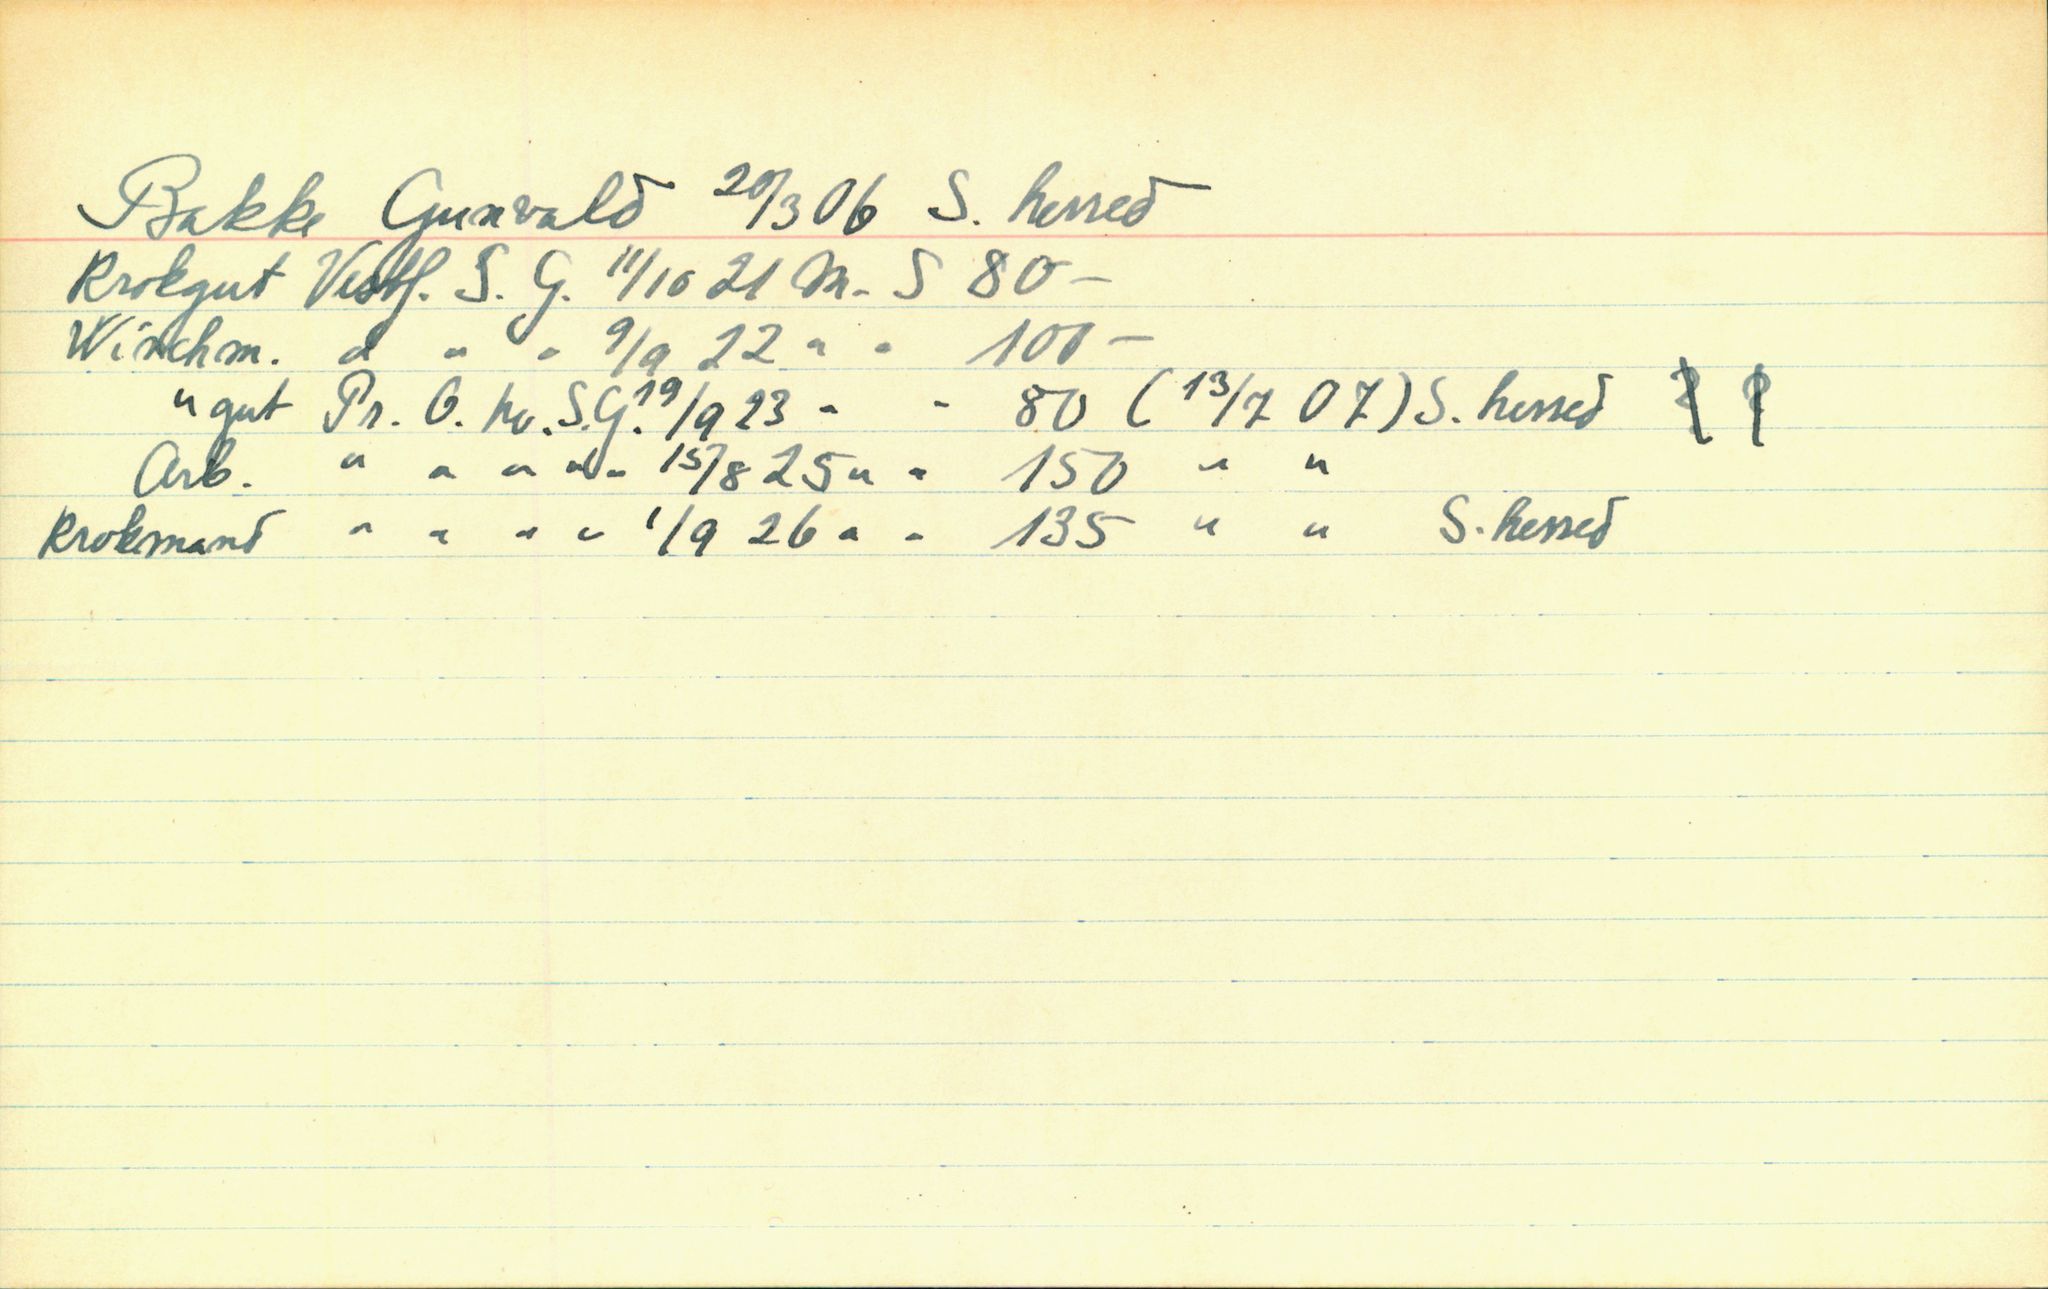 Bakke Gunvald 20/3 06 S. herred
Krokgut Vestf. S. G. 11/10 21 M. S 80 -
Winchm. " " " 9/9 22 " " 100 -
" gut Pr. O. hv. S.G. 19/9 23 " " 80 (13/7 07) S. herred
Arb. " " " " " 15/8 25 " " 150 " "
Krokmand " " " " 1/9 26 " " 135 " " S. herred